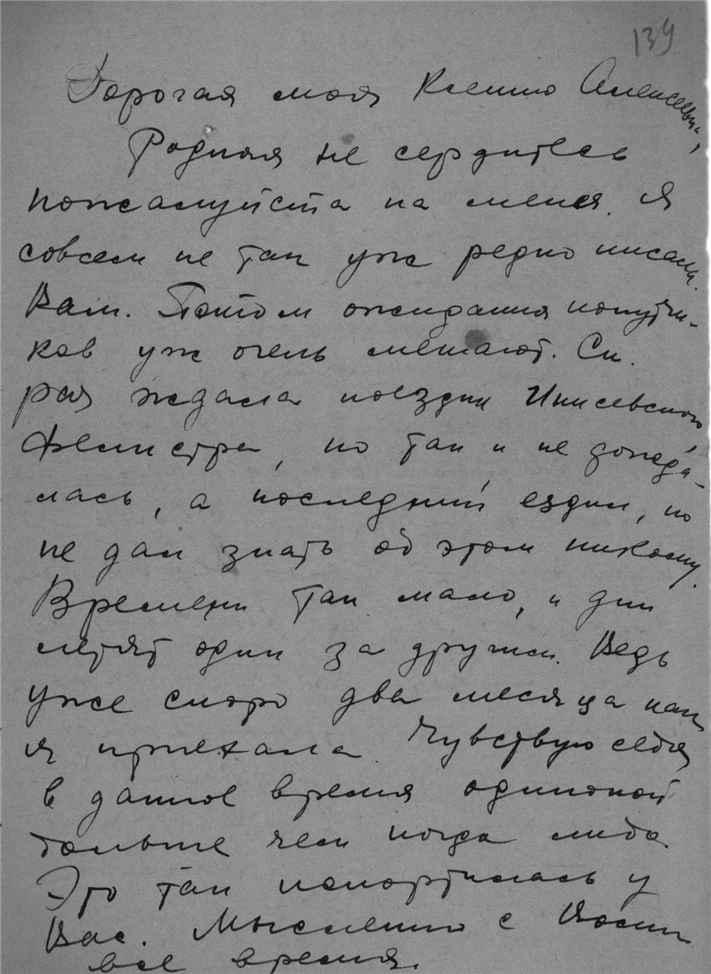 139
Дорогая моя Ксению Алексеевна,
Родная не сердитесь
пожалуйста на меня. Я
совсем не так уж редко писала
Вам. Потом ожидания попутчи-
ков уж очень мешают. Ск.
раз ждала поездки
но так и не дожда-
лась, а последний ездил, но
не дал знать об этом никому.
Времени так мало, и дни
летят один за другим. Ведь
уже скоро два месяца как
я приехала. Чувствую себя
в данное время одинокой
больше чем когда либо.
Это так у
Вас. Мысленно с Вами
все время.